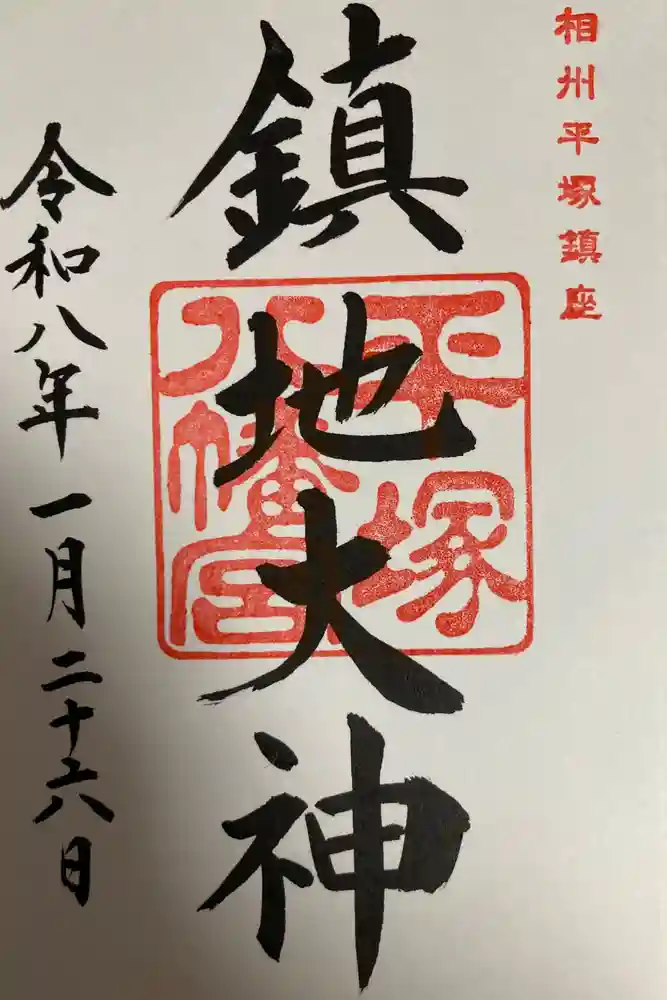 相州平塚鎮座
鎮地大神
平塚
八幡宮
令和八年一月二十六日